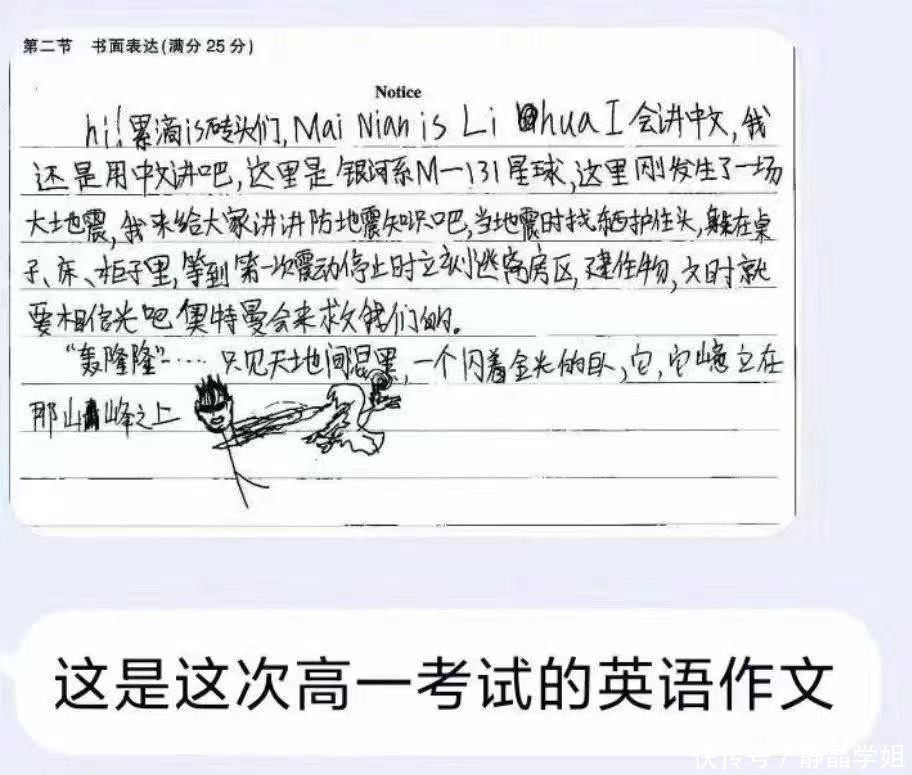 第二节 书面表达(满分25分)
Notice
hi!累滴is砖头们,Mai Nian is Li hua I会讲中文,我
还是用中文讲吧,这里是银河系M一131星球,这里刚发生了一场
大地震,我来给大家讲讲防地震知识吧,当地震时找东西护住头,躲在桌
子、床、柜子里,等到第一次震动停止时立刻逃离房区,建住物,欠时就
要相信光吧 奥特曼会来救我们的。
“轰隆隆”…… 只见天地间混黑,一个闪着金光的巨,它,它屹立在
那山峰之上
这是这次高一考试的英语作文
快传号/静晶学姐